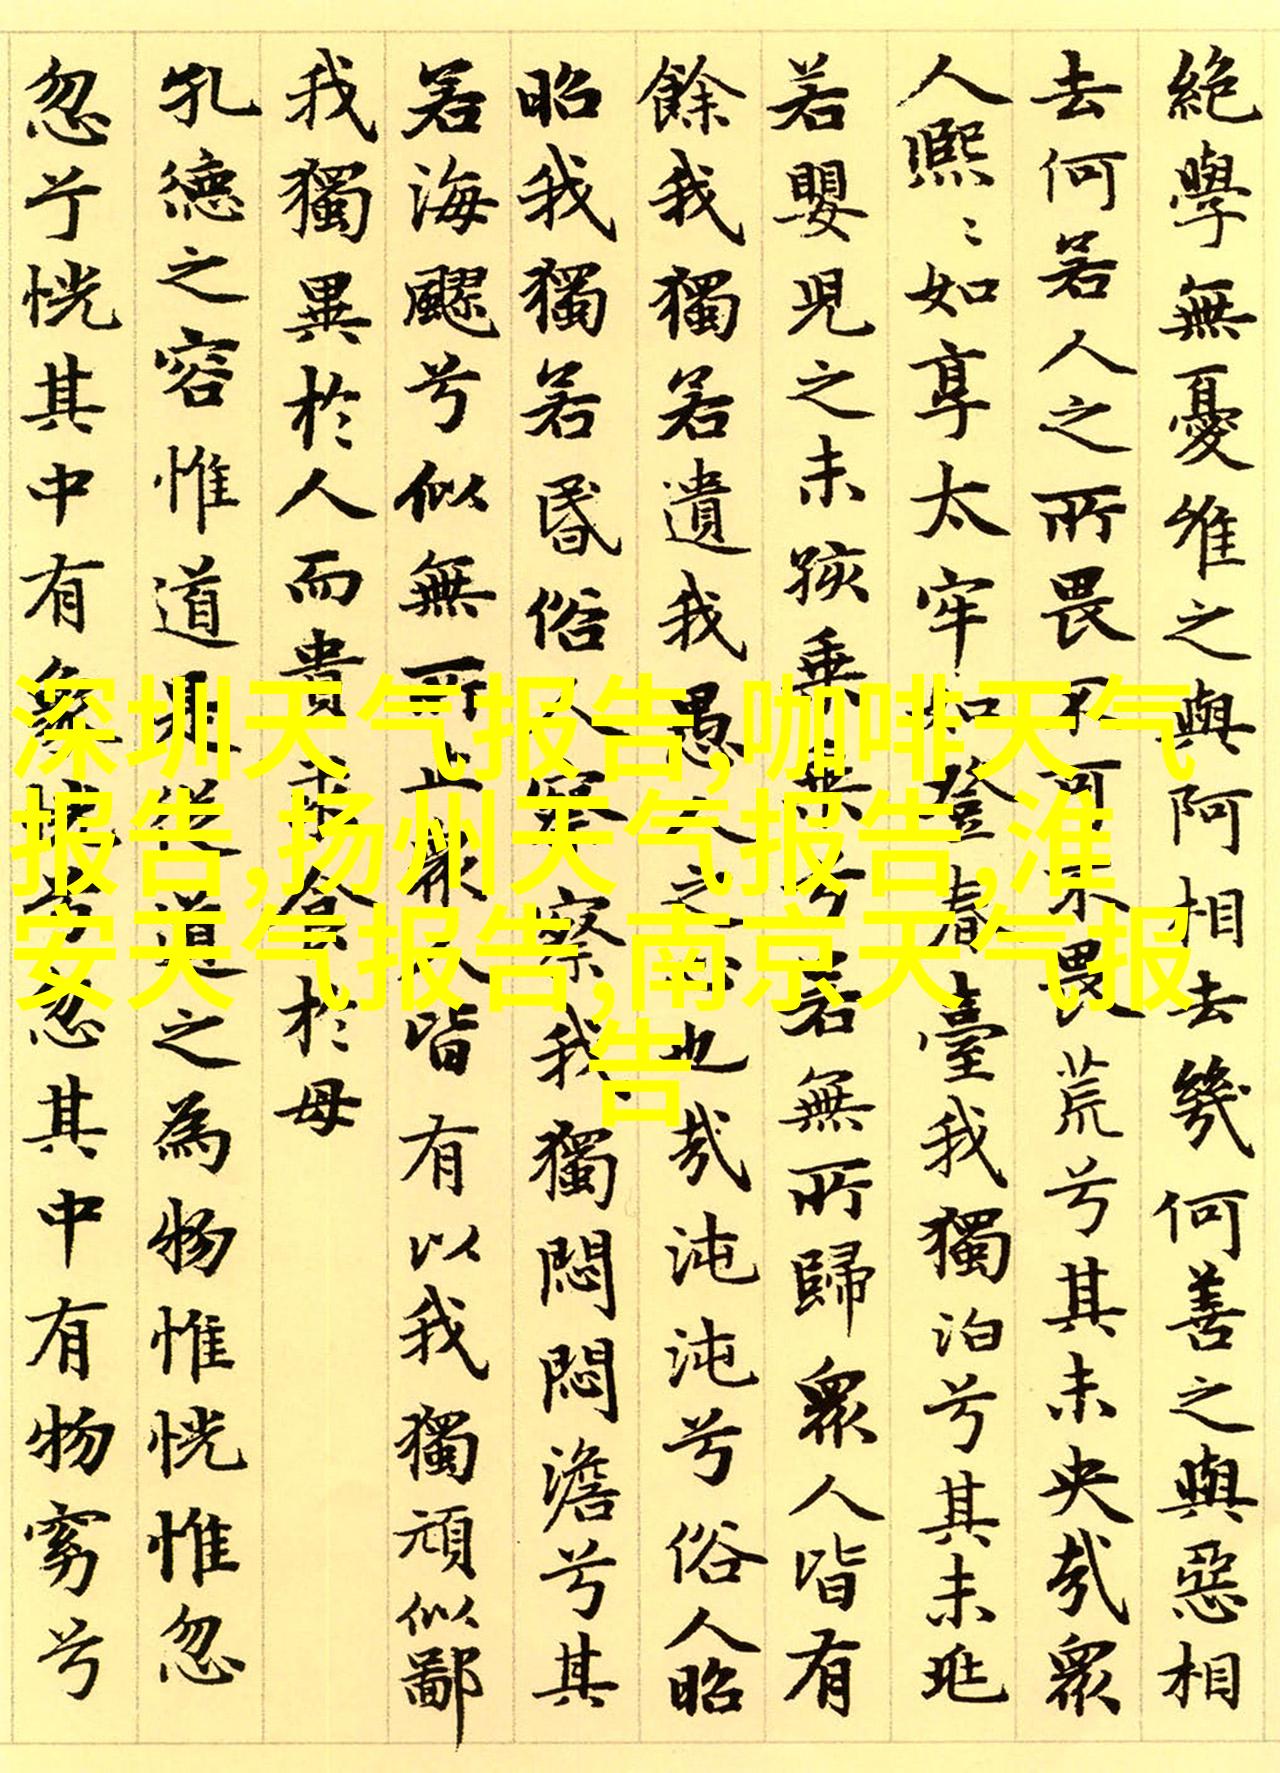 絶學無憂唯之與阿相去幾何善之與惡相
去何若人之所畏不可不畏荒兮其未央哉眾
人熙〻如享太牢如登春臺我獨泊兮其未兆
若嬰兒之未孩乗乗兮若無所歸眾人皆有
餘我獨若遺我愚人之心也哉沌沌兮俗人昭
昭我獨若昬俗人察察我獨悶悶澹兮其
若海飂兮似無所止眾人皆有以我獨頑似鄙
我獨異於人而貴求食於母
孔德之容惟道是從道之為物惟恍惟忽
忽兮恍其中有象恍兮忽其中有物窈兮
深圳天气报告,咖啡天气
报告,扬州天气报告,淮
安天气报告,南京天气报
告